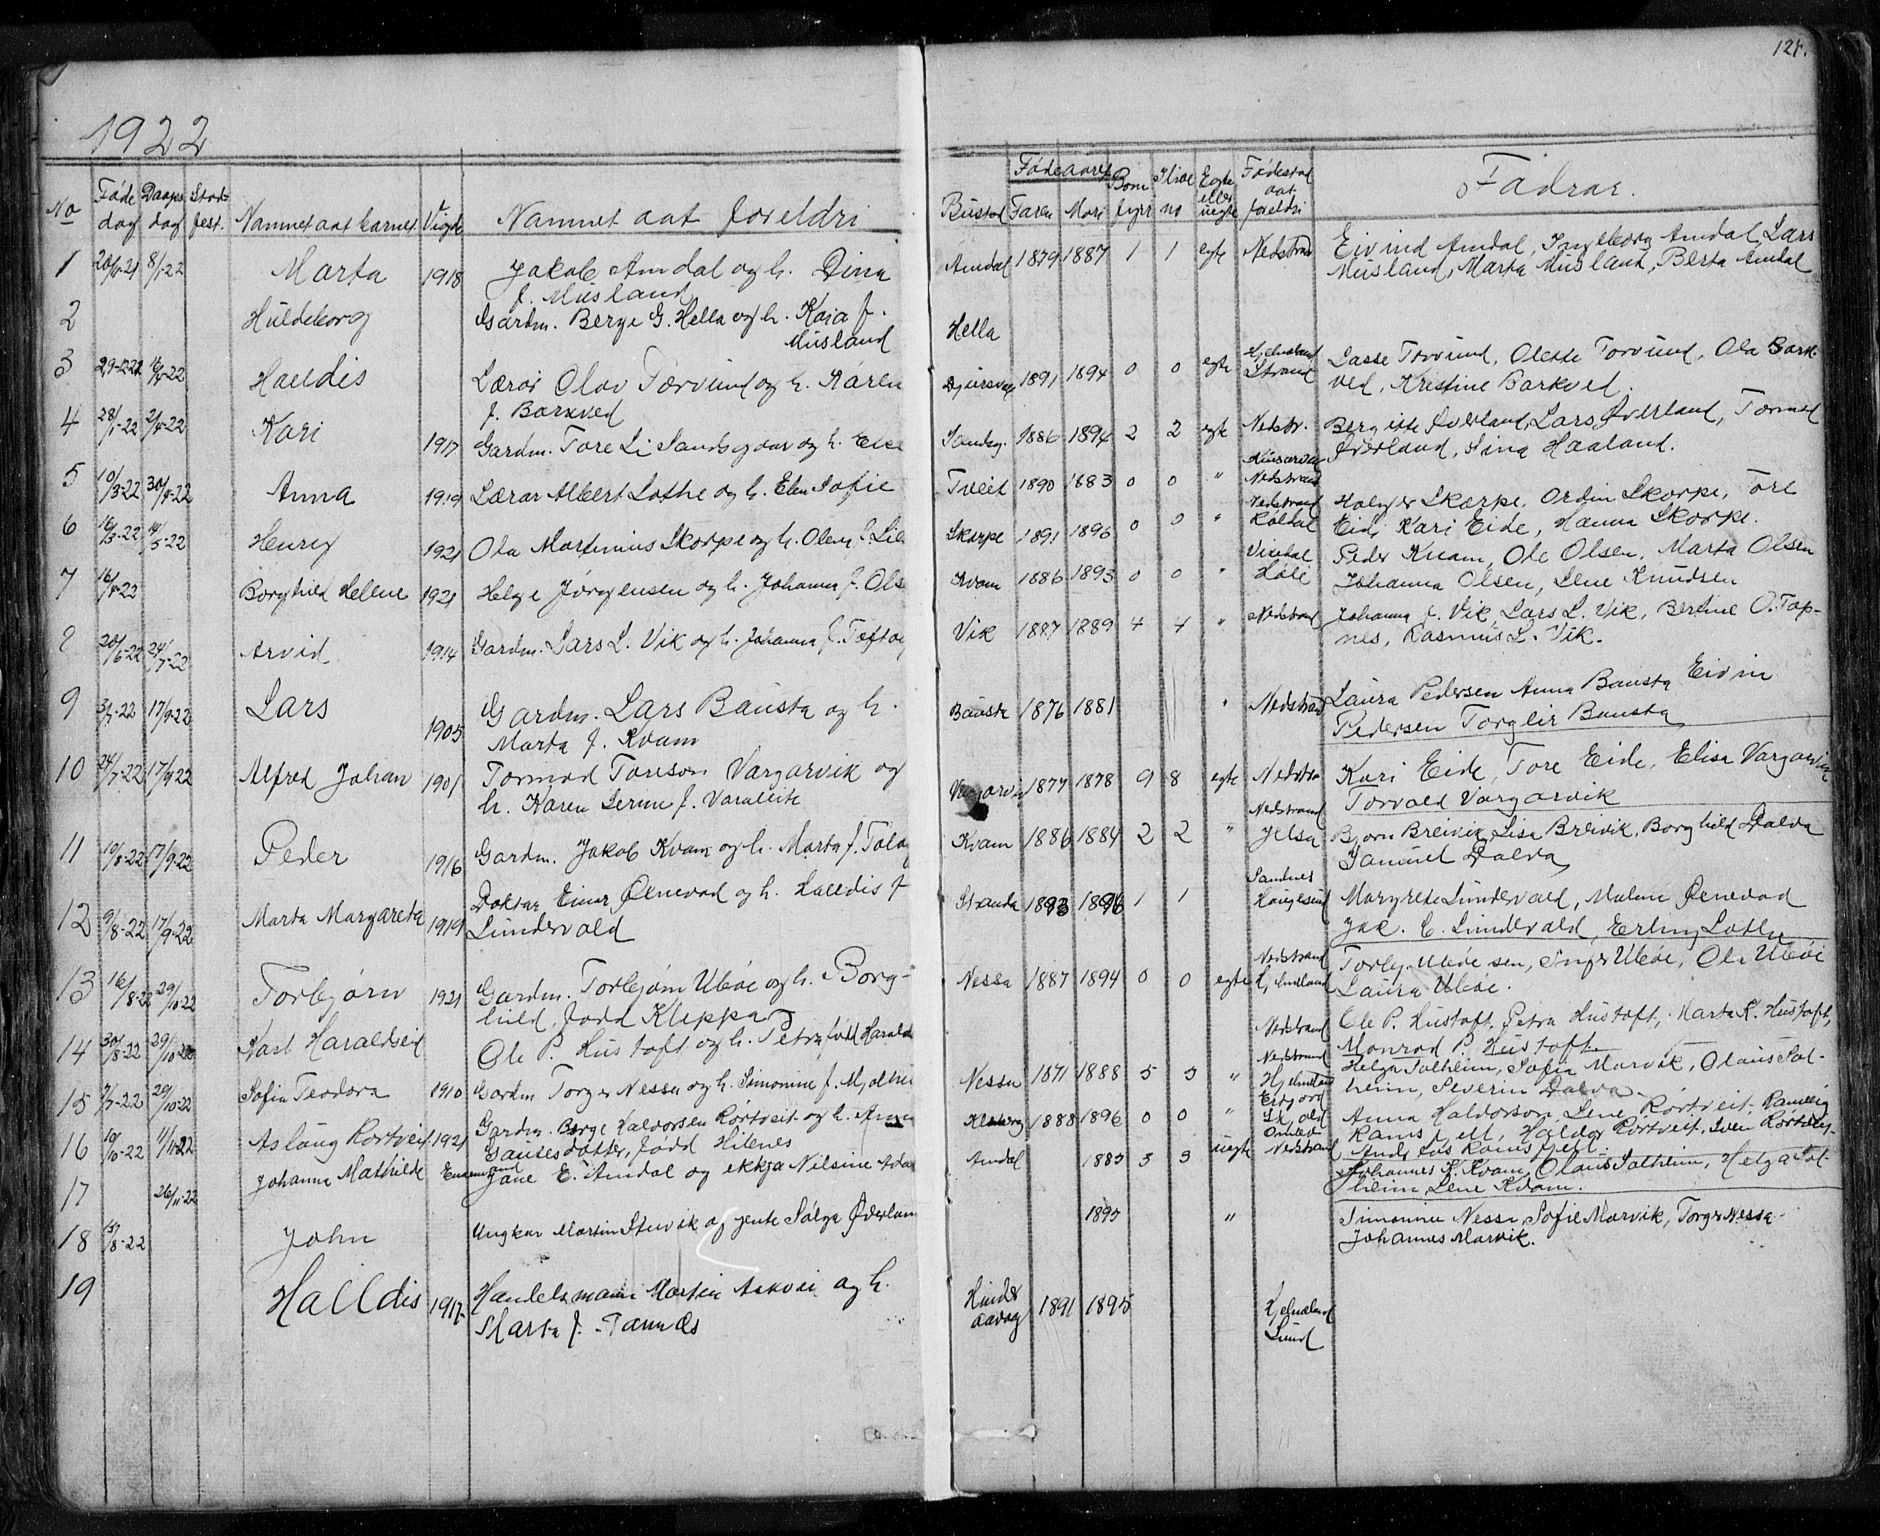 124.
1922
No Føde dag Daaps dag Stad fest. Namnet aat barnet Vigde Namnet aat foreldri Bustad Fødeaaret Faren Mori Born fyrr Ilive no Egte eller uegte Fødestad aat foreldri Fadrar.
1 8/1 22 Marta 1918 Jakob Amdal og h. Dina Amdal 1879 1887 1 1 egte Nedstrand Eivind Amdal, Ingeborg Amdal, Lars
f. Musland Musland, Marta Musland, Berta Amdal
2 Huldeborg Gardm. Berge G. Hella og h. Kaia f. Hella
Musland
3 Halldis Lærar Olav Torvund og h. Karen 1891 1894 0 0 egte Hjelmeland Lasse Torvund, Olette Torvund, Ola Bark-
f. Barkved Strand ved, Kristine Barkved.
4 28/1-22 2/4-22 Kari 1917 Gardm. Tore Li Sandsgaar og h. Else Sandsg. 1886 1894 2 2 egte Nedstr. Bergitte Øverland, Lars Øverland, Tormod
Øverland, Sina Haaland.
5 10/3-22 30/4-22 Anna 1919 Lærar Albert Lothe og h. Elen Sofie Tveit 1890 1883 0 0 " Nedstrand
6 16/3-22 14/5-22 Henry 1921 Ola Martinius Skorpe og h. Olene f. Lie Skorpe 1891 1896 0 0 " Nedstrand Holger Skorpe, Ordin Skorpe, Tore
Røldal Eide, Kari Eide, Hanna Skorpe.
7 16/4-22 Borghild Hellene 1921 Helge Jørgensen og h. Johanna f. Olse Kvam 1886 1893 0 0 " Peder Kvam, Ole Olsen, Marta Olsen
Høle Johanna Olsen, Lene Knudsen
8 20/6-22 24/7-22 Arvid 1914 Gardm. Lars L. Vik og h. Johanna f. Toftøy Vik 1887 1889 4 4 " Nedstrand Johanna f. Vik, Lars L. Vik, Berthe O. Top-
nes, Rasmus L. Vik.
9 3/7-22 17/9-22 Lars 1905 Gardm. Lars Bausta og h. Bausta 1876 1881 " Nedstrand Laura Pedersen Anna Bausta Eivin
Marta f. Kvam Pedersen Torgeir Bausta
10 24/7-22 17/9-22 Alfred Johan 1901 Tormod Toreson Vargarvik og 1877 1878 9 8 egte Nedstr. Kari Eide, Tore Eide, Elisa Vargarvik
h. Karen Serine f. Torvald Vargarvik
11 19/8-22 17/9-22 Peder 1916 Gardm. Jakob Kvam og h. Marta f. Kvam 1886 1884 2 2 " Nedstrand Jelsa Bjørn Breivik, Lisa Breivik, Borghild Dalva
Samuel Dalva
12 9/8-22 17/9-22 Marta Margareta 1919 Doktar Einar Ølnevad og h. Halldis f. Stranda 1893 1896 1 1 Sandnes Haugesund Margrete Lundervald, Malene Ølnevad
Lundervald Jak. C. Lundervald, Erling Lothe
13 16/8-22 29/10-22 Torbjørn 1921 Gardm. Torbjørn Ubøe og h. Borg- Nessa 1887 1894 0 0 egte Nedstrand Hjelmeland Torbj. Ubøe sen, Inger Ubøe, Ola Ubøe
hild, fødd Kleppa Laura Ubøe.
14 30/8-22 29/10-22 Karl Haraldseid Ole P. Hustoft og h. Petra fødd Harald Nedstrand Ole P. Hustoft, Petra Hustoft, Marta K. Hustoft,
Monrad P. Hustoft.
15 7/7-22 29/10-22 Sofia Teodora 1910 Gardm Torger Nessa og h. Simonine f. Nessa 1871 1888 5 5 " Nedstrand Helga Solheim, Sofia Marvik, Olaus Sol-
heim, Severin Dalva
16 10/10-22 11/11-22 Aslaug Rørtveit 1921 Gardm. Børge Haldorsen Rørtveit og h. Anna 1888 1896 0 0 " Anna Haldorson, Lene Rørtveit, Ranveig
Gautesdotter, fødd Hilenes Ramsfjell, Haldor Rørtveit, Sven Rørtveit,
Anders Ramsfjell.
17 26/11-22 Johanna Mathilde Enkemand Jane E. Amdal og ekkja Nilsine Amdal 1883 3 3 uegte Nedstrand Johannes K. Kvam, Olaus Solheim, Helga Sol-
heim, Lene Kvam.
18 John Ungkar Martin Stuvik og gjente Solga Øverland 1895 " Simonine Nessa, Sofie Marvik, Torger Nessa
Johannes Marvik.
19 Halldis 1917 Handelsmann Martin Askvei og h. Hinder aavag 1891 1895 Hjelmeland
Marta f. Lund